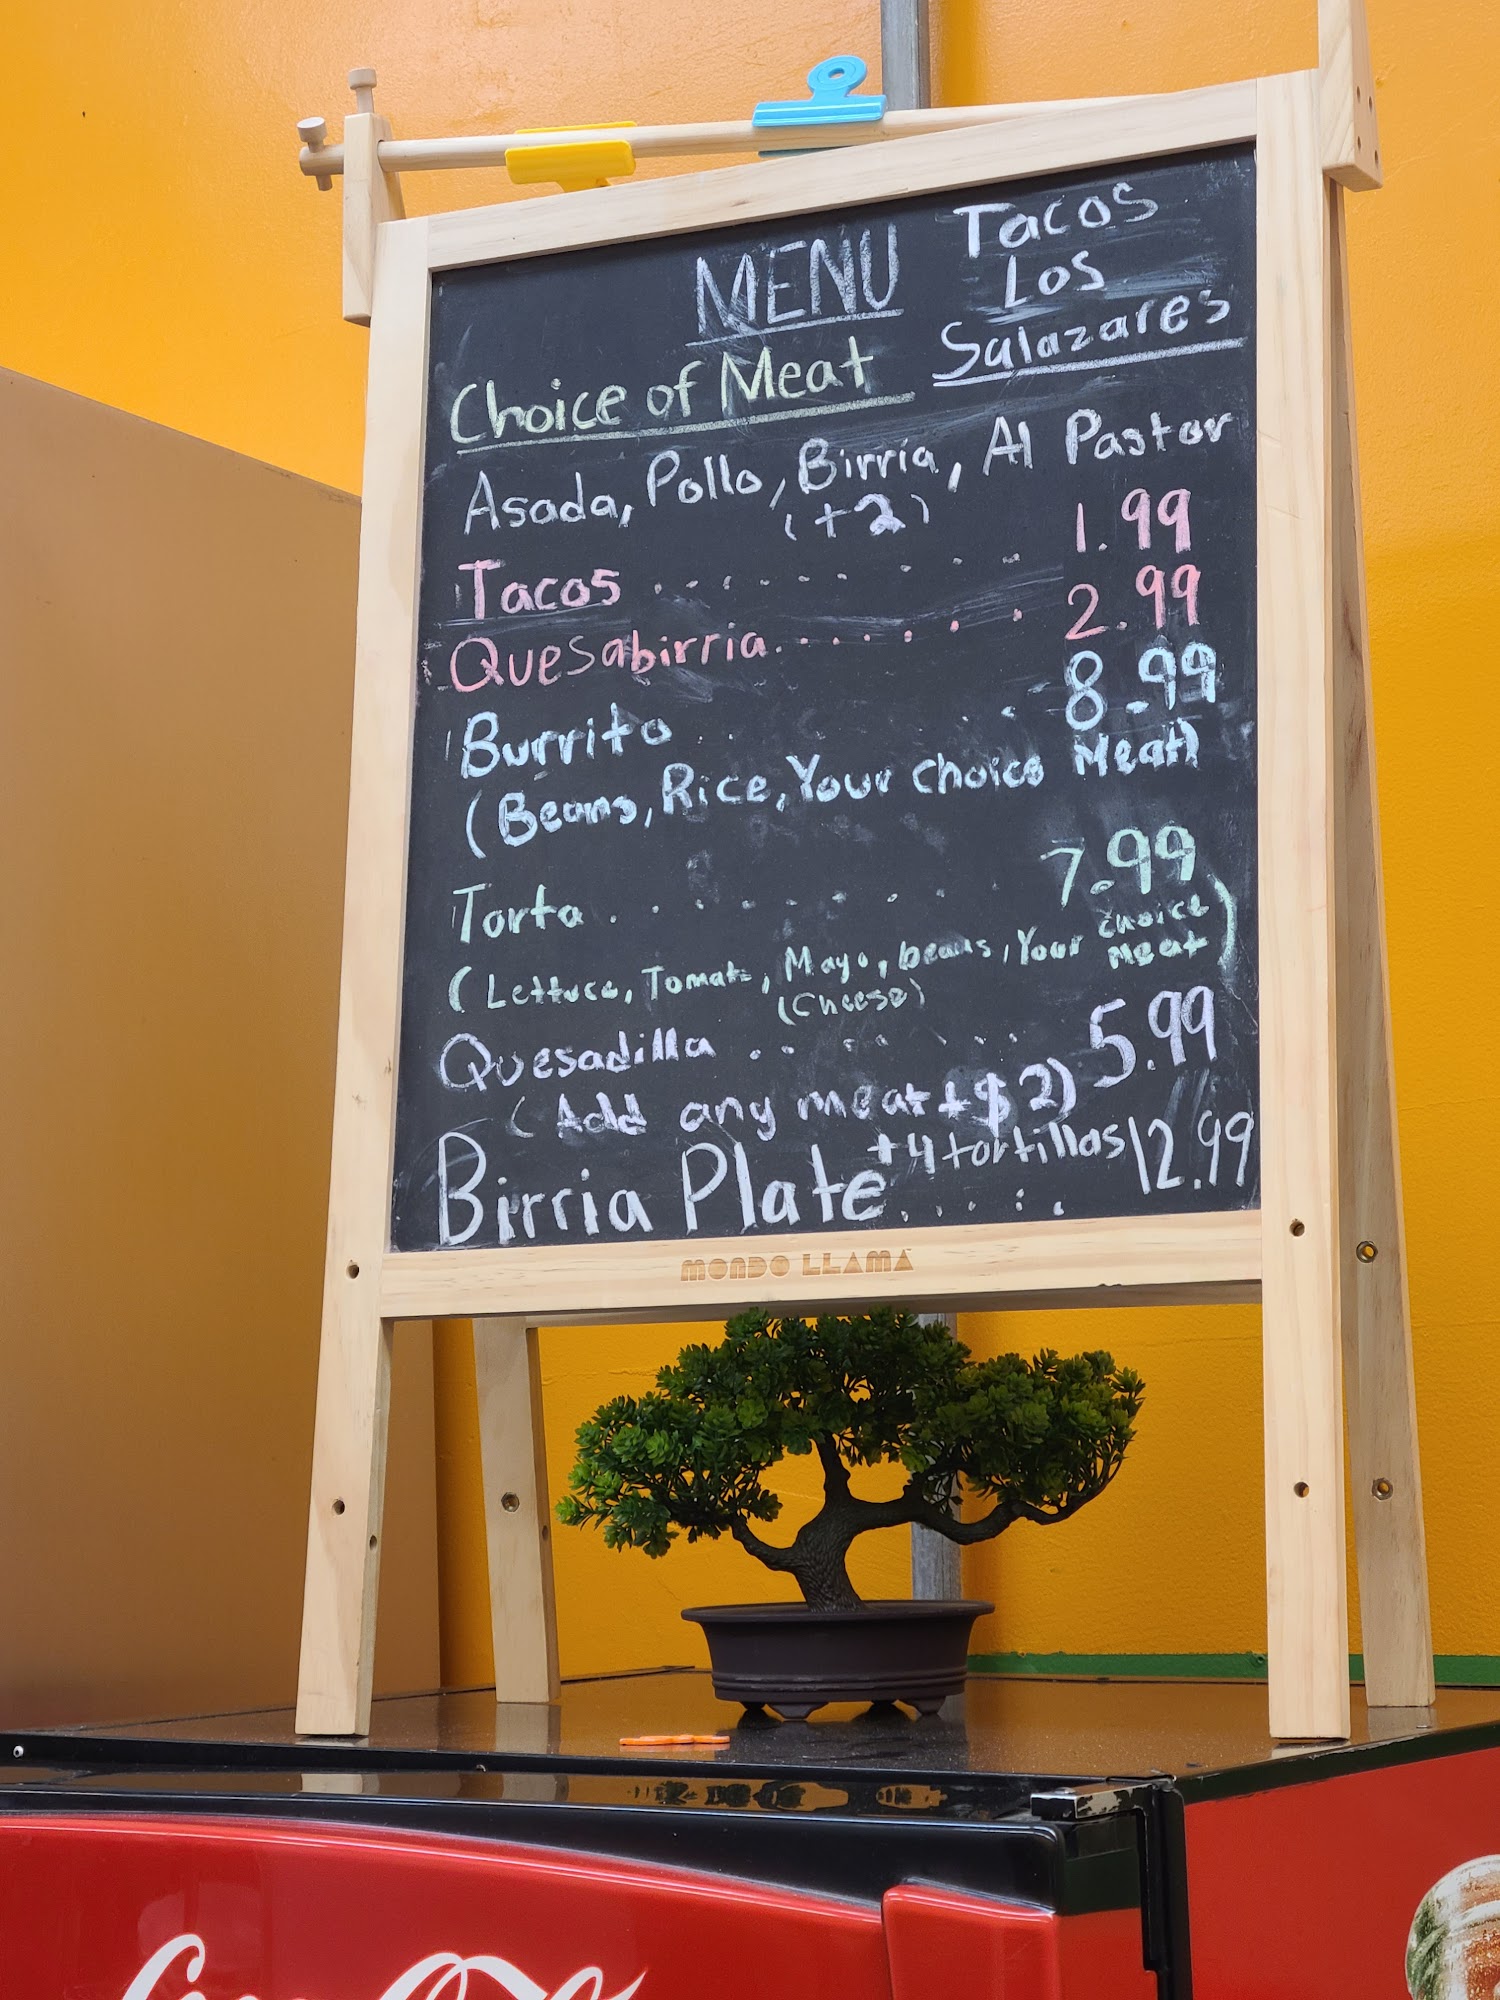 MENU
Tacos
Los
Salazares
Choice of Meat
Asada, Pollo, Birria, Al Pastor
(+2)
Tacos . . . . . . . . . 1.99
Quesabirria . . . . . . . 2.99
Burrito . . . 8.99
(Beans, Rice, Your choice Meat)
Torta . . . . . . . . . 7.99
(Lettuce, Tomate, Mayo, beans, Your choice Meat)
(Cheese)
Quesadilla . . . . . . 5.99
(Add any meat + $2)
Birria Plate +4 tortillas . . . . . 12.99
MONDO LLAMA
Coca-Cola